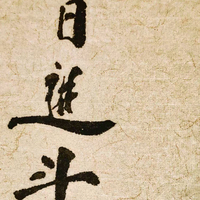 日進斗